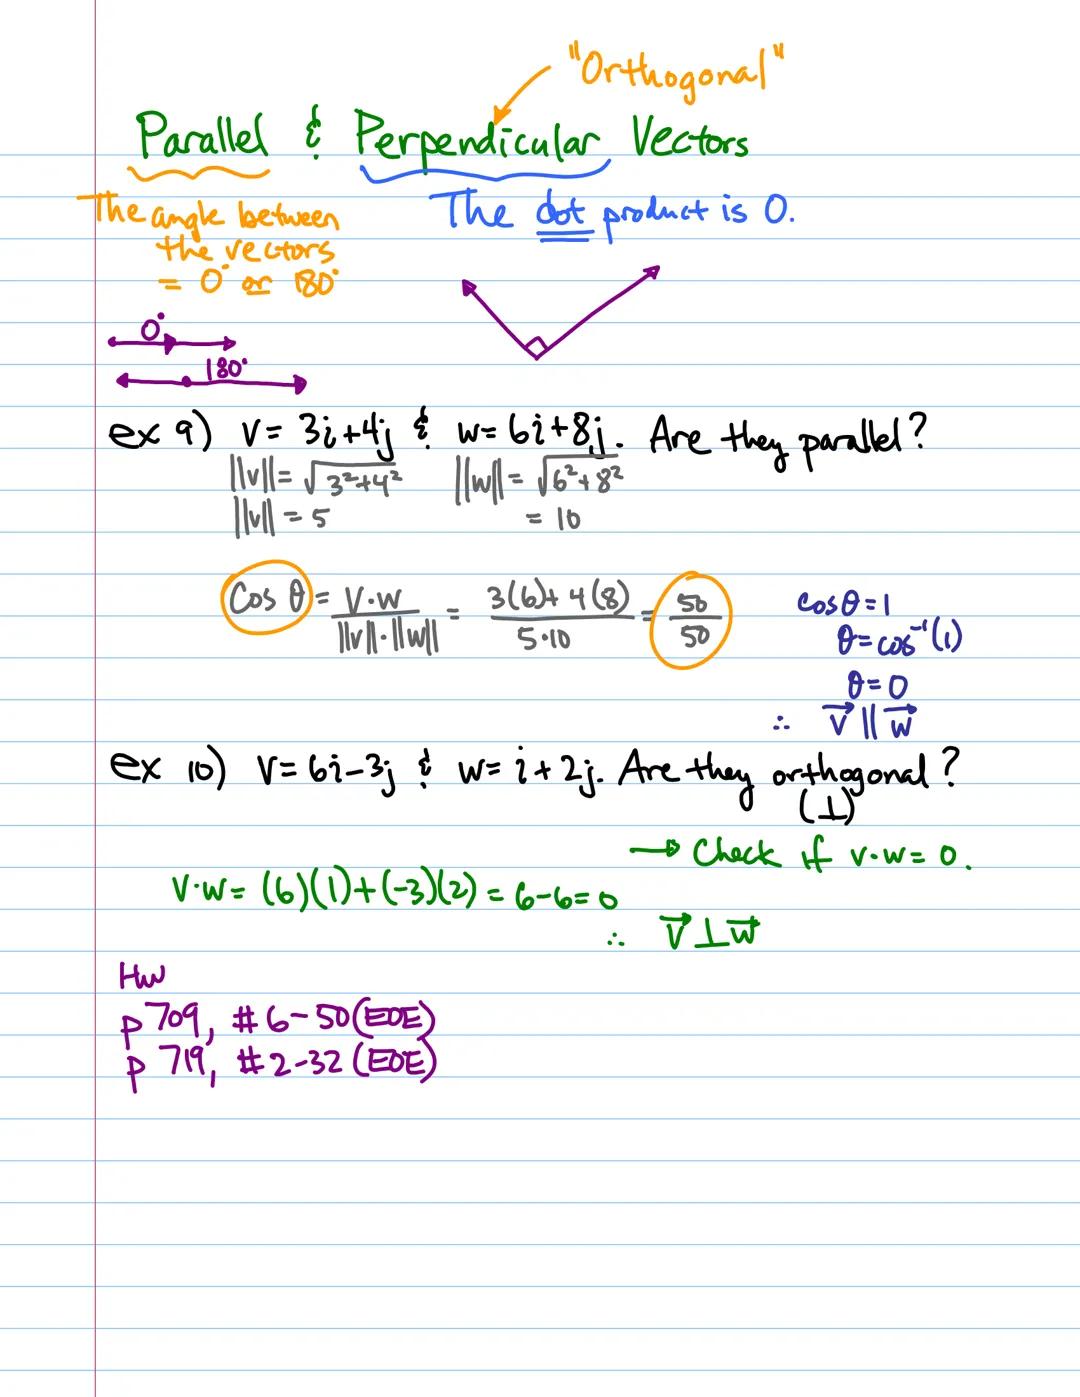 "Orthogonal"
Parallel & Perpendicular Vectors
The angle between
the vectors
= 0° or 180°
The dot product is 0.
0°
180°
ex 9) v= 3i+4j & w= 6i+8j. Are they parallel?
||v||= √3²+4² ||w||= √6²+8²
||v|| = 5 = 10
Cos θ = v·w / ||v||·||w|| = 3(6)+4(8) / 5·10 = 50/50
cosθ=1
θ=cos⁻¹(1)
θ=0
∴ v⃗ || w⃗
ex 10) v= 6i-3j & w= i+2j. Are they orthogonal?
(⊥)
→ Check if v·w=0.
v·w= (6)(1)+(-3)(2) = 6-6=0
∴ v⃗ ⊥ w⃗
HW
p 709, #6-50(EOE)
p 719, #2-32(EOE)